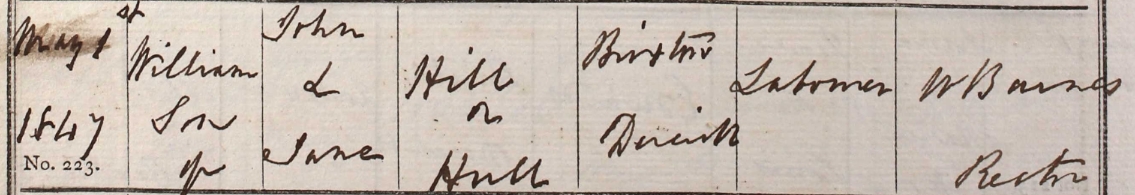 May 1st
1847
No. 223.
William
Son
of
John
&
Jane
Hill
or
Hull
Brixton
Labourer
W Barnes
Rector